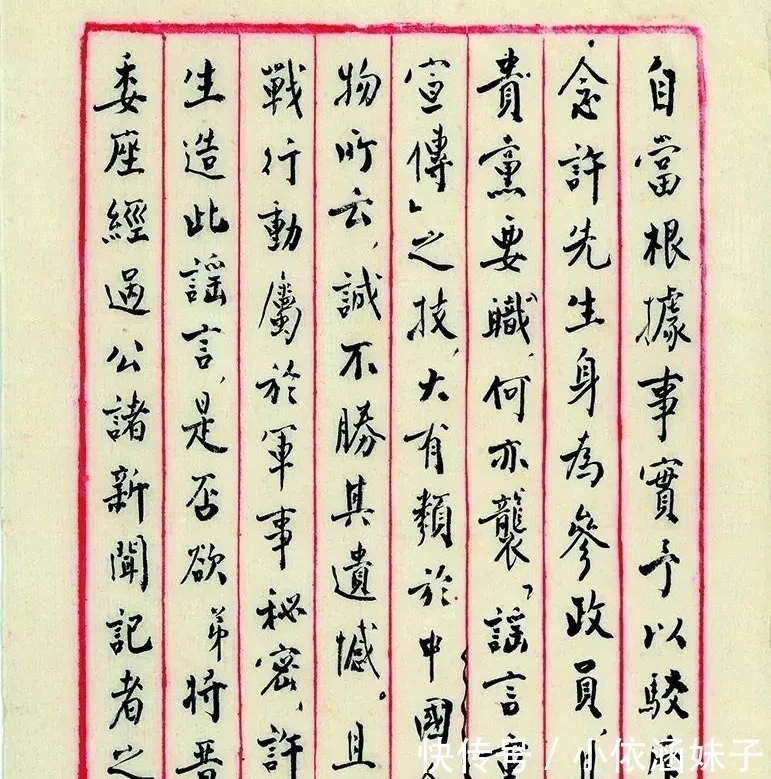 自當根據事實予以駁
念許先生身為參政員,
貴黨要職,何亦襲「謠言
宣傳」之技,大有類於中國
物所云,誠不勝其遺憾。且
戰行動屬於軍事秘密,許
生造此謠言,是否欲弟將晋
委座經過公諸新聞記者之
快传号 / 小依涵妹子